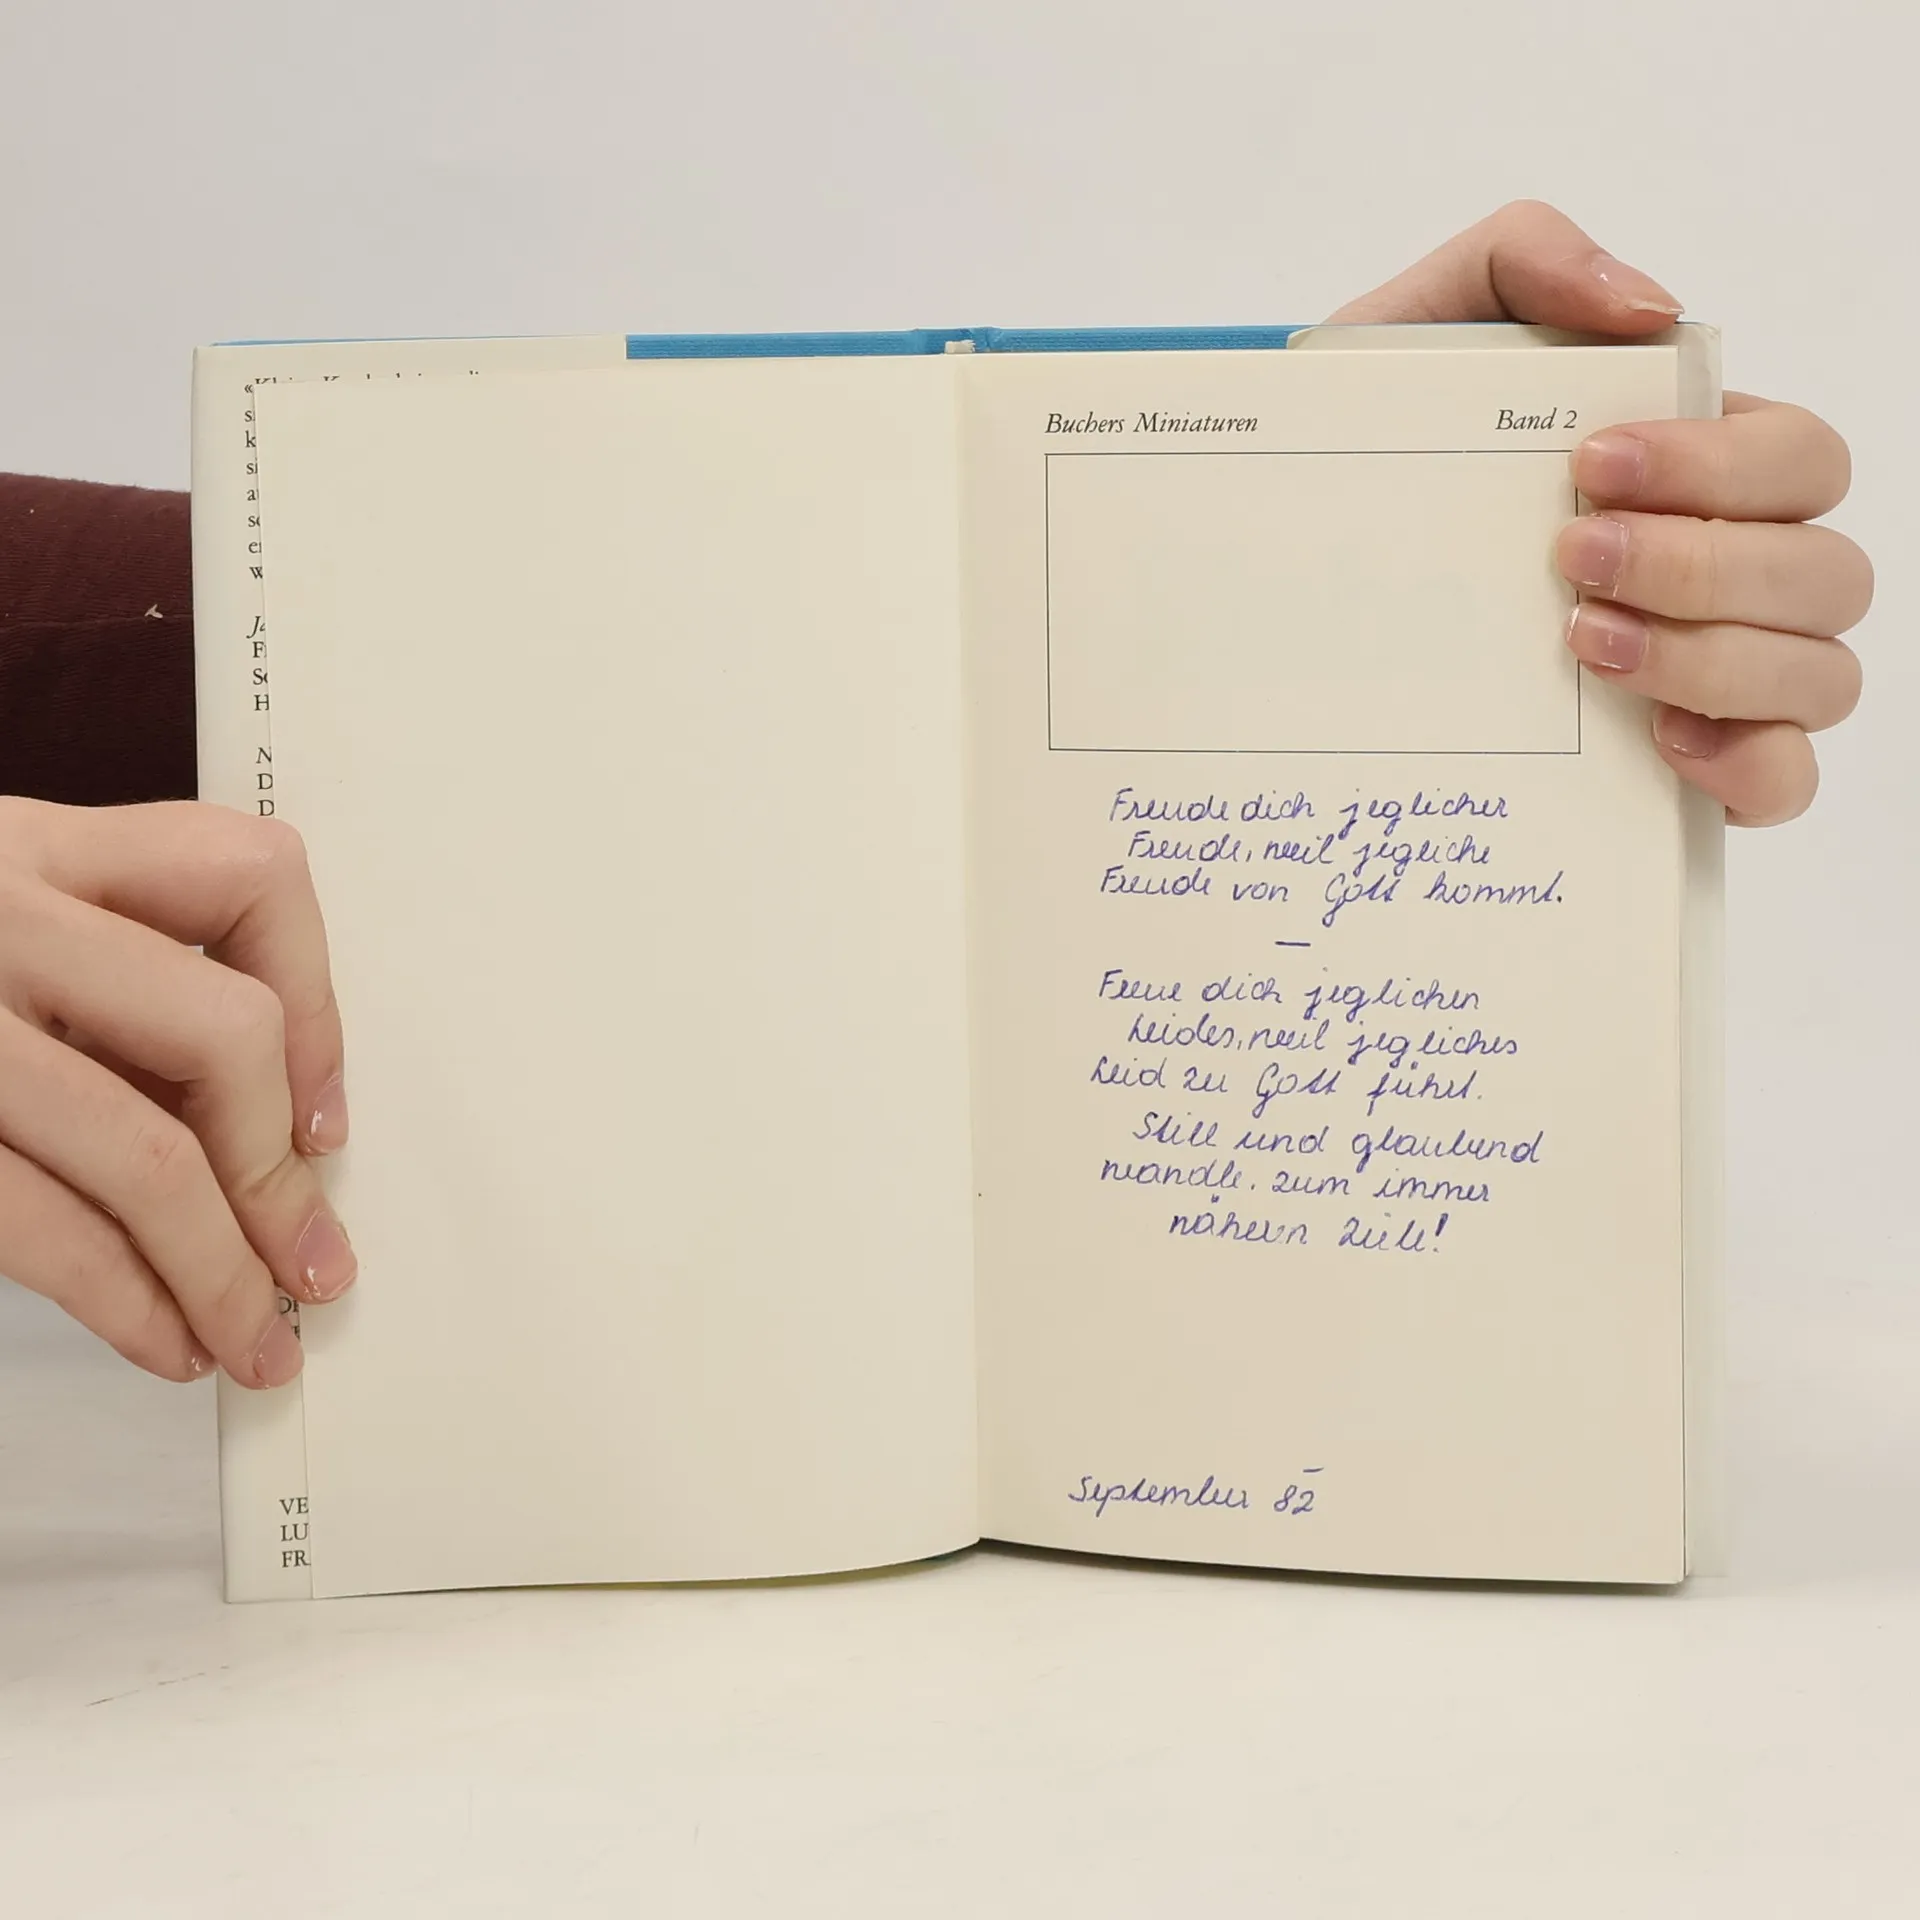 Buchers Miniaturen Band 2
Freude dich jeglicher
Freude, weil jegliche
Freude von Gott kommt.
—
Freue dich jeglichen
Leides, weil jegliches
Leid zu Gott führt.
Still und glaubend
wandle. zum immer
nähern Ziele!
September 82
VE
LU
FR